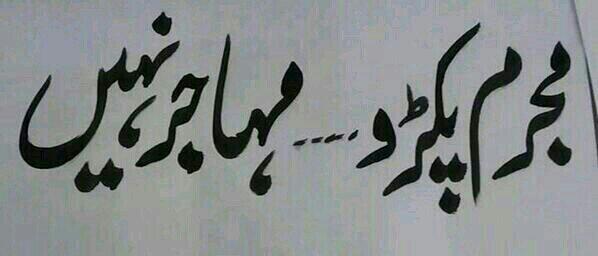 مجرم پکڑو .... مہاجر نہیں